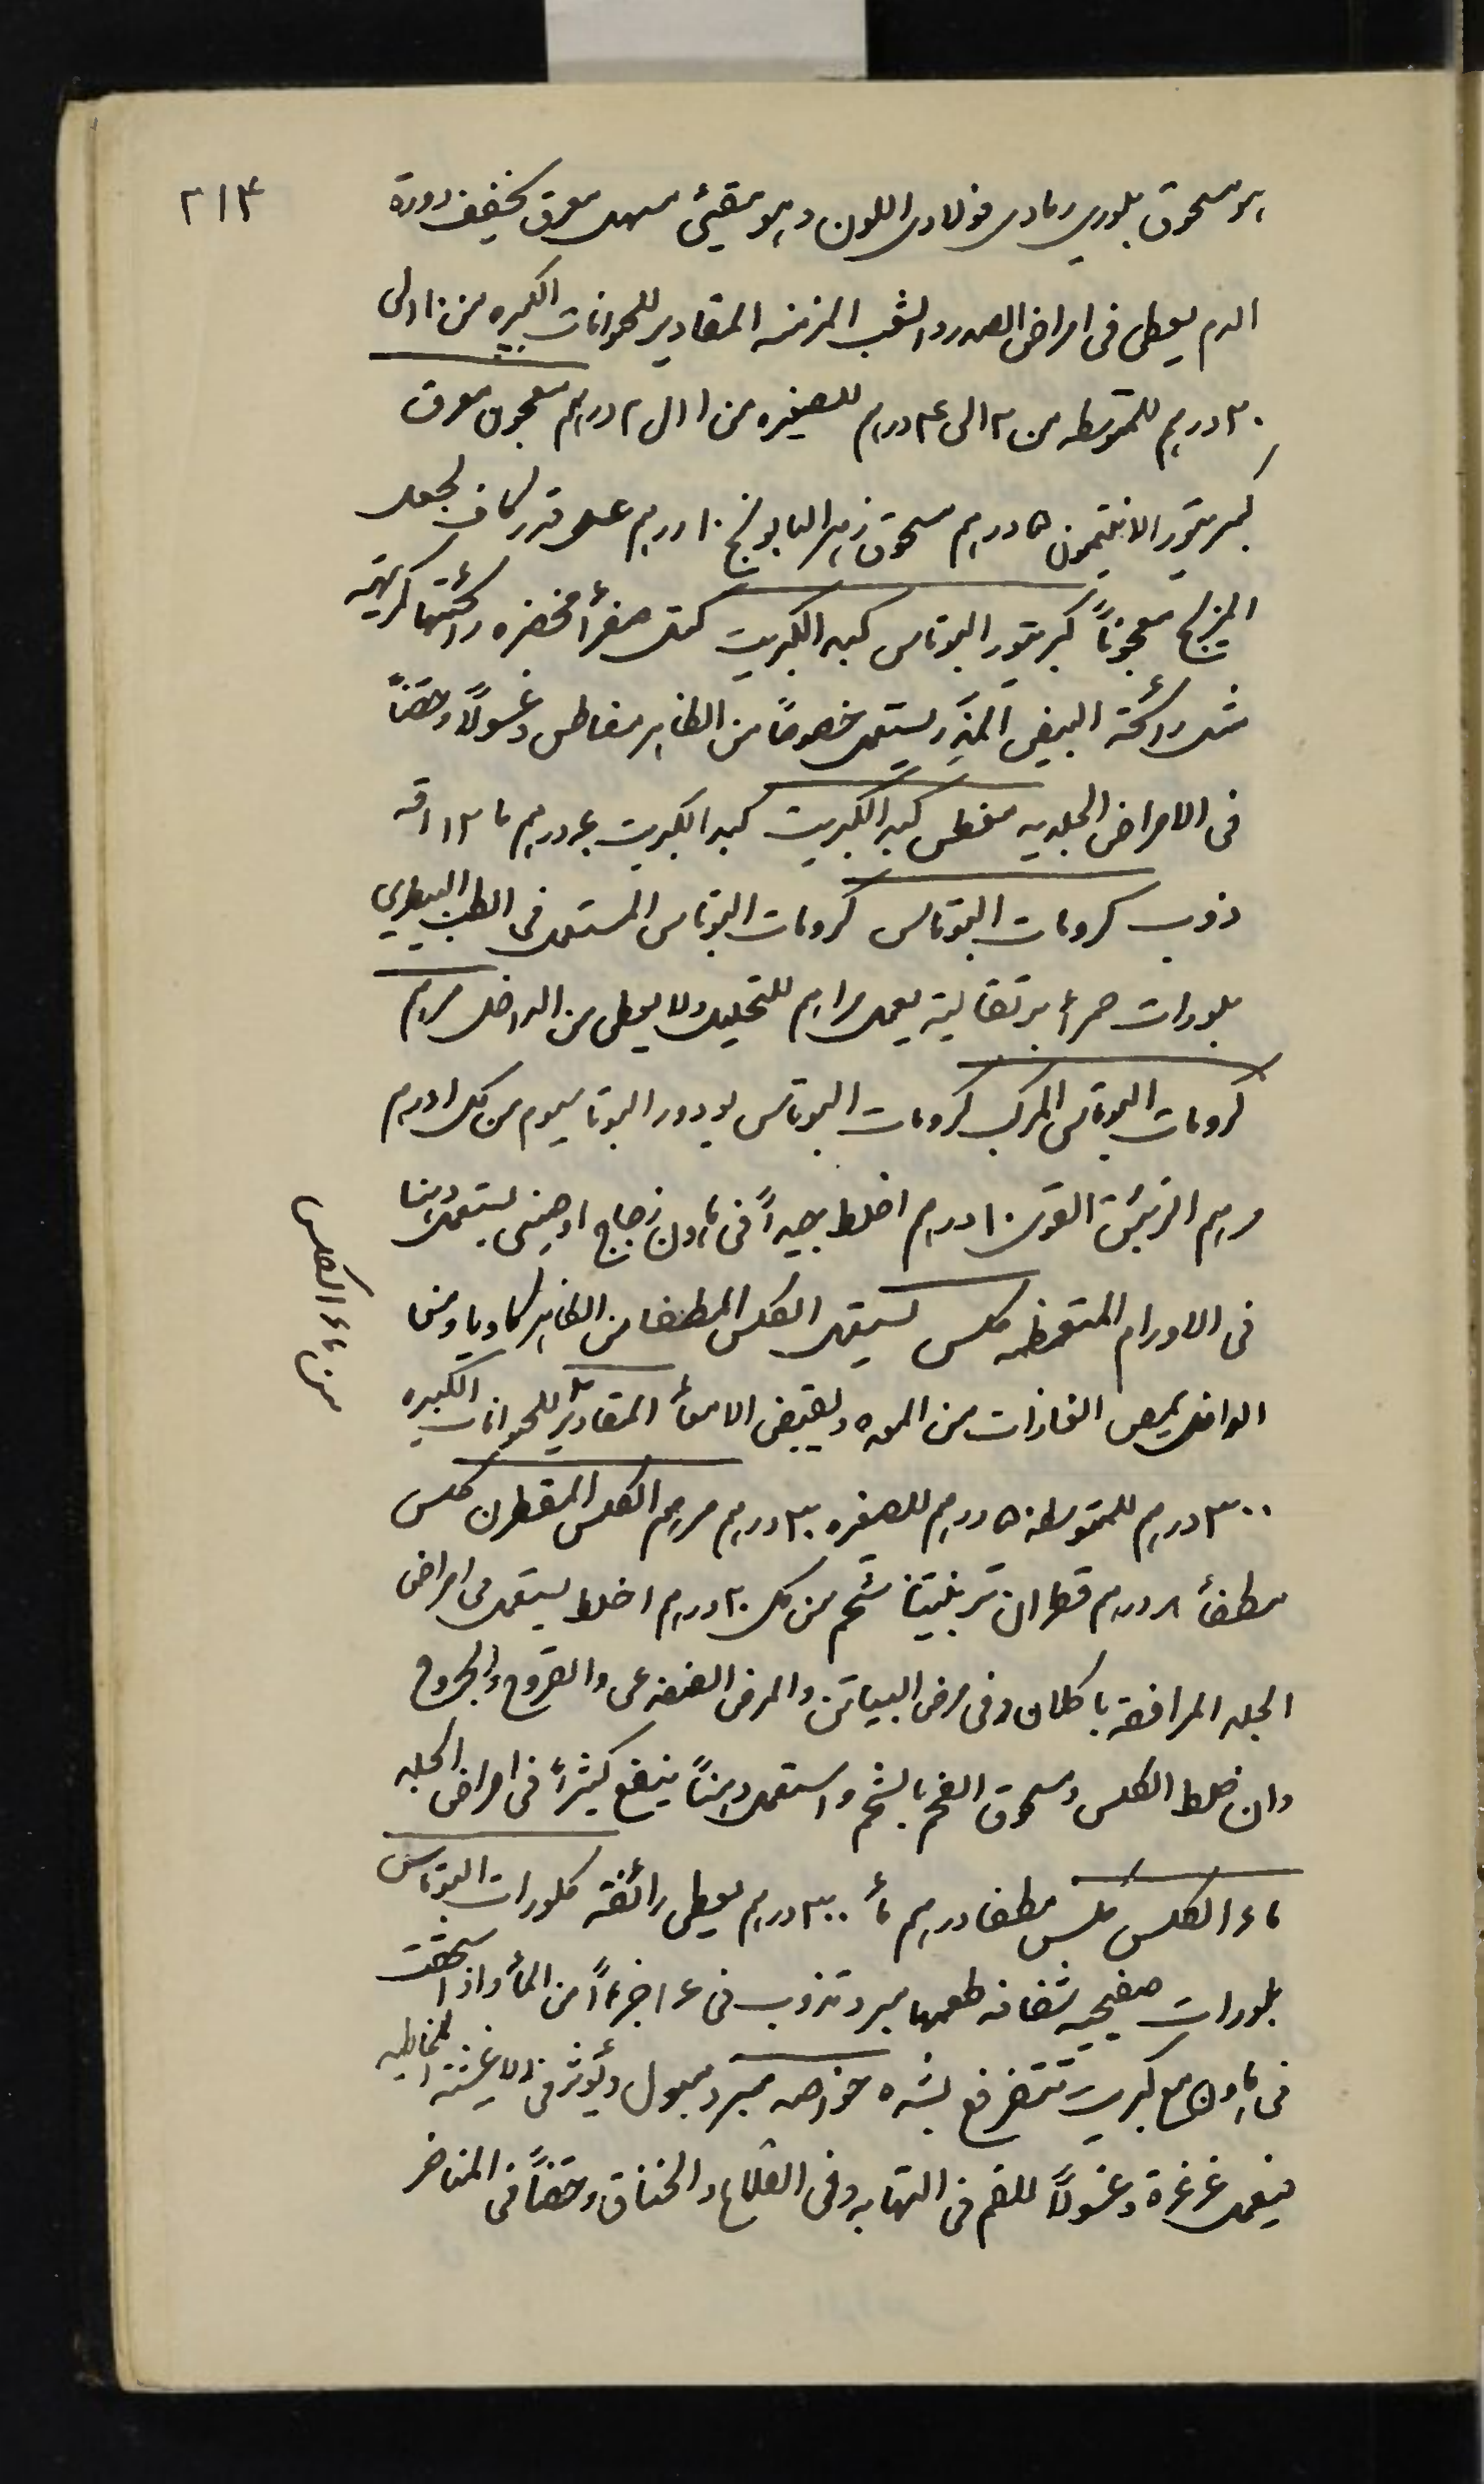 ٢١٣
هو مسحوق بلوري رمادى فولادى اللون وهو مقيئ مسهل معرق يخفف دورة
الدم يعطى فى امراض الصدر والشعب المزمنه المقادير للحيوانات الكبيره من ١٠ الى
٢٠ درهم للمتوسطه من ٢ الى ٤ درهم للصغيره من ١ الى ٢ درهم معجون معرق
كبريتور الانتيمون ١٥ درهم مسحوق زهر البابونج ١٠ درهم عسل قدر كاف لجعل
المزيج معجوناً كبريتور البوتاس كبد الكبريت كتل صفرأ مخضره رائحتها كريهه
مثل رائحة البيض المذر يستعمل خصوصاً من الظاهر مغاطس وغسولاً وحقناً
فى الامراض الجلديه مغطس كبد الكبريت كبد الكبريت ٤٠ درهم ما ١٢ اقه
ذوب كرومات البوتاس كرومات البوتاس المستعمل فى الطب البيطري
بلورات حمرأ برتقالية يعمل مراهم للتحليل ولا يعطى من الداخل مرهم
كرومات البوتاس المركب كرومات البوتاس يودور البوتاسيوم من كل ١ درهم
مرهم الزئبق القوى ١٠ درهم اخلط جيداً فى هاون زجاج او صينى يستعمل دهنا
فى الاورام المتعظمه كلس يستعمل الكلس المطفا من الظاهر كاويا ومن
الداخل يمص الغازات من المعده ويقبض الامعأ المقادير للحيوانات الكبيره
٣٠٠ درهم للمتوسطه ٥٠ درهم للصغيره ٣٠ درهم مرهم الكلس المقطرن كلس
مطفأ ٨ درهم قطران تربنتينا شحم من كل ٢٠ درهم اخلط يستعمل فى امراض
الجلد المرافقة باكلان وفى مرض البياتن والمرض الضفدعى والقروح والجروح
وان خلط الكلس ومسحوق الفحم بالشحم واستعمل دهناً ينفع كثيراً فى امراض الجلد
ماء الكلس كلس مطفا درهم مأ ٣٠٠ درهم يعطى رائقه كلورات البوتاس
بلورات صفيحيه شفافه طعمها مبرد تذوب فى ١٤ جزءاً من المأ واذا سحقت
فى هاون مع كبريت تتفرقع بشده خواصه مبرد مبول ويؤثر فى الاغشية المخاطيه
فيعمل غرغرة وغسولاً للفم فى التهابه وفى القلاع والخناق وحقناً فى المناخر
من ماء الكلس